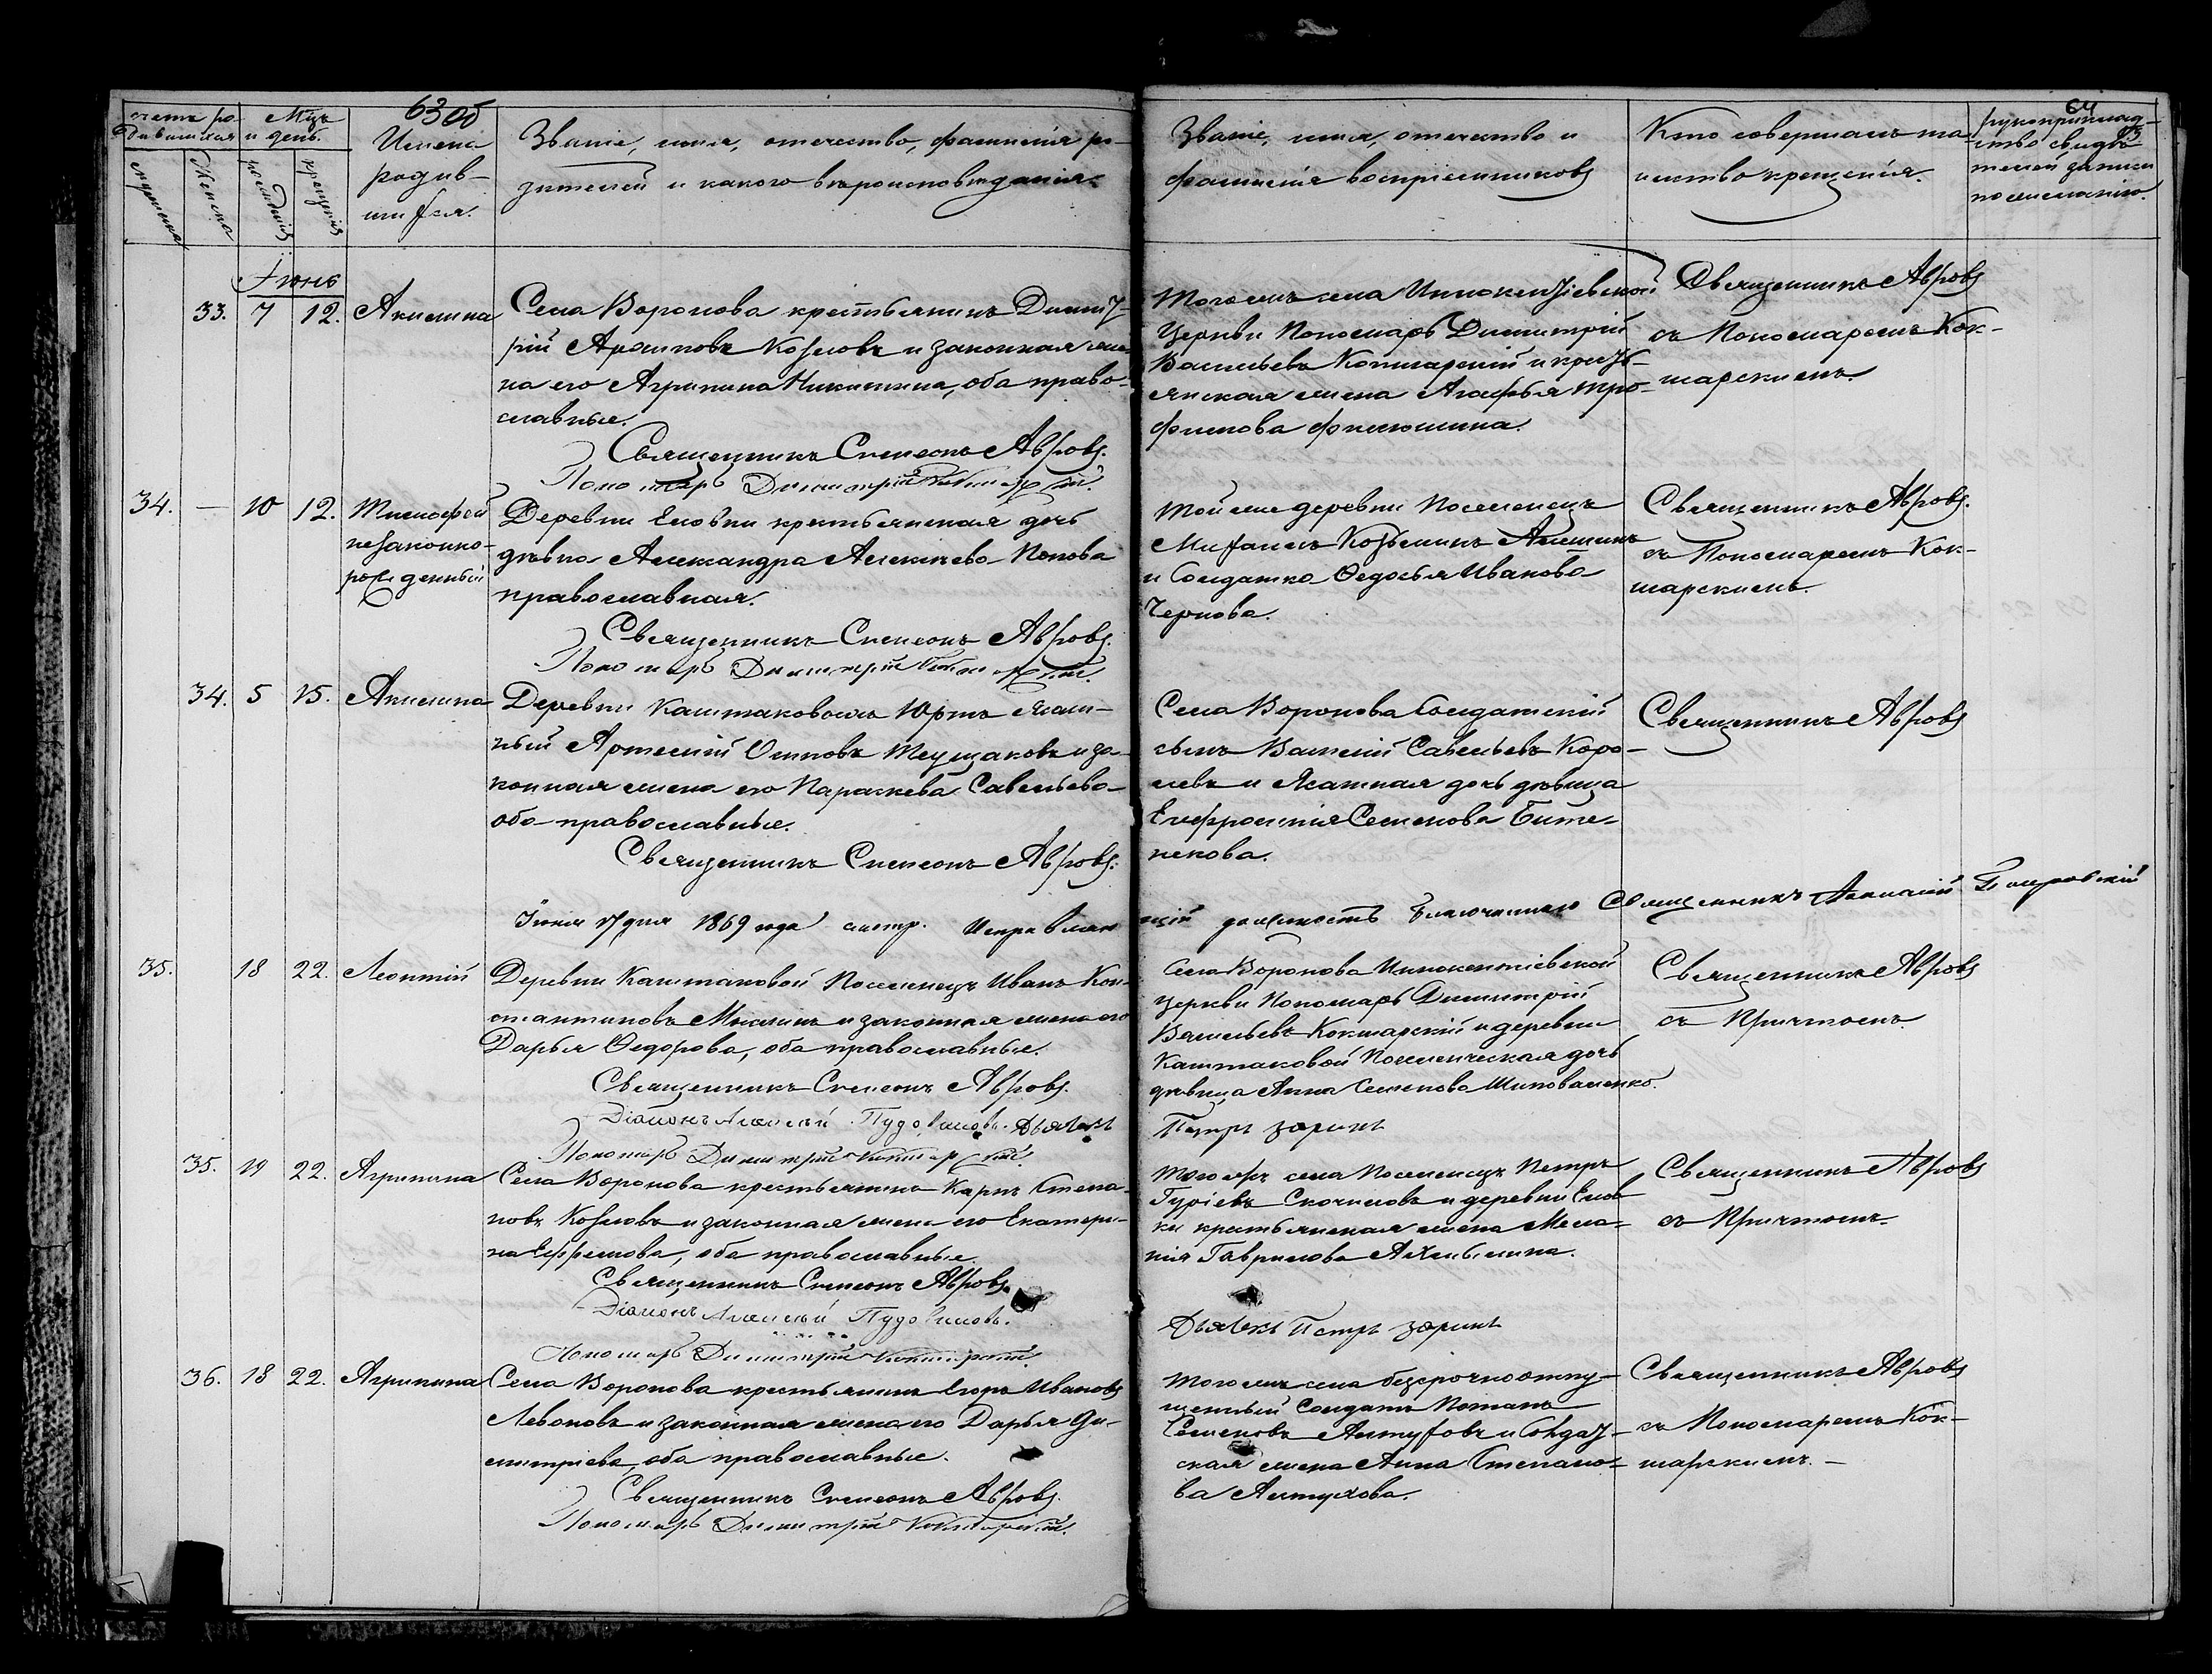 63 об
64
счетъ ро-
дившихся
Мцъ
и день.
мужеска
женска
рожденія
крещенія
Имена
родив-
шихся.
Званіе, имя, отечество, фамилія ро-
дителей и какого вѣроисповѣданія.
Званіе, имя, отечество и
фамилія воспріемниковъ
Кто совершалъ та-
инство крещенія.
рукоприклад-
ство свидѣ-
телей записи
по желанію.
Іюнь
33. 7 12. Акилина
Села Воронова крестьянинъ Димит-
рій Архиповъ Козловъ и законная же-
на его Агрипина Никитина, оба право-
славные.
Священникъ Симеонъ Авровъ.
Пономарь Димитрій Кокшарскій.
Тогожъ села Иннокентіевской
Церкви Пономарь Димитрій
Васильевъ Кокшарскій и кресть-
янская жена Агафья Тро-
фимова Филюшина.
Священникъ Авровъ
съ Пономаремъ Кок-
шарскимъ.
34. — 10 12. Тимофей
незаконно-
рожденный
Деревни Еловки крестьянская дочь
дѣвка Александра Алексѣева Попова
православная.
Священникъ Симеонъ Авровъ.
Пономарь Димитрій Кокшарскій.
Той же деревни Поселенецъ
Михаилъ Козьминъ Алешинъ
и Солдатка Ѳедосья Иванова
Чернова.
Священникъ Авровъ.
съ Пономаремъ Кок-
шарскимъ.
34. 5 15. Акилина
Деревни Каштаковыхъ Юртъ Ясаш-
ный Артемій Осиповъ Теущаковъ и за-
конная жена его Параскева Савельева
оба православные.
Священникъ Симеонъ Авровъ.
Села Воронова Солдатскій
сынъ Василій Савельевъ Коро-
левъ и Ясашная дочь дѣвица
Евфросинія Семенова Бите-
некова.
Священникъ Авровъ
Іюня 17 дня 1869 года смотр. Исправляю
щій должность Благочиннаго Священникъ Покровскій
35. 18 22. Леонтій
Деревни Каштаковой Поселенецъ Иванъ Кон-
стантиновъ и законная жена его
Дарья Ѳедорова, оба православные.
Священникъ Симеонъ Авровъ.
Діаконъ Алексѣй Пудовиковъ. Дьячекъ
Пономарь Димитрій Кокшарскій.
Села Воронова Иннокентіевской
церкви Пономарь Димитрій
Васильевъ Кокшарскій и деревни
Каштаковой Поселенческая дочь
дѣвица Анна Семенова Шиповаленко.
Петръ Заринъ
Священникъ Авровъ
съ Причтомъ.
35. 19 22. Агрипина
Села Воронова крестьянинъ Карпъ Степа-
новъ Козловъ и законная жена его Екатери-
на Ефремова, оба православные
Священникъ Симеонъ Авровъ.
Діаконъ Алексѣй Пудовиковъ.
Пономарь Димитрій Кокшарскій.
Тогожъ села Поселенецъ Петръ
Гуріевъ Скочиловъ и деревни Елов
ки крестьянская жена Мела-
нія Гаврилова
Дьячекъ Петръ Заринъ
Священникъ Авровъ
съ Причтомъ.
36. 18 22. Агрипина
Села Воронова крестьянинъ Егоръ Ивановъ
Левоновъ и законная жена его Дарья Ди-
митріева, оба православные.
Священникъ Симеонъ Авровъ.
Пономарь Димитрій Кокшарскій.
Тогожъ села безсрочноотпу-
щенный Солдатъ Потапъ
Семеновъ Алтуховъ и Солдат-
ская жена Анна Степано-
ва Алтухова.
Священникъ Авровъ
съ Пономаремъ Кок-
шарскимъ. —